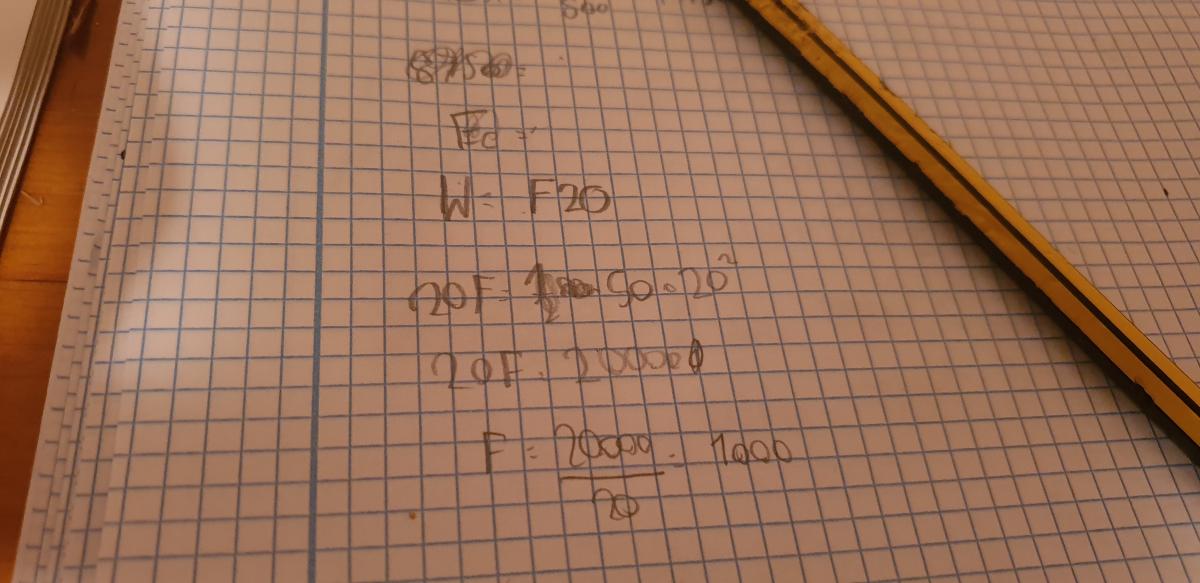 500
W = F20
20F = 1/2 50 · 20²
20F = 20000
F = 20000/20 = 1000